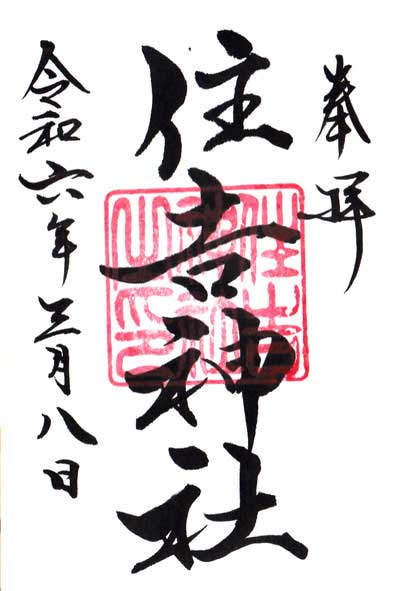 奉拝
住吉神社
住吉神社之印
令和六年三月八日